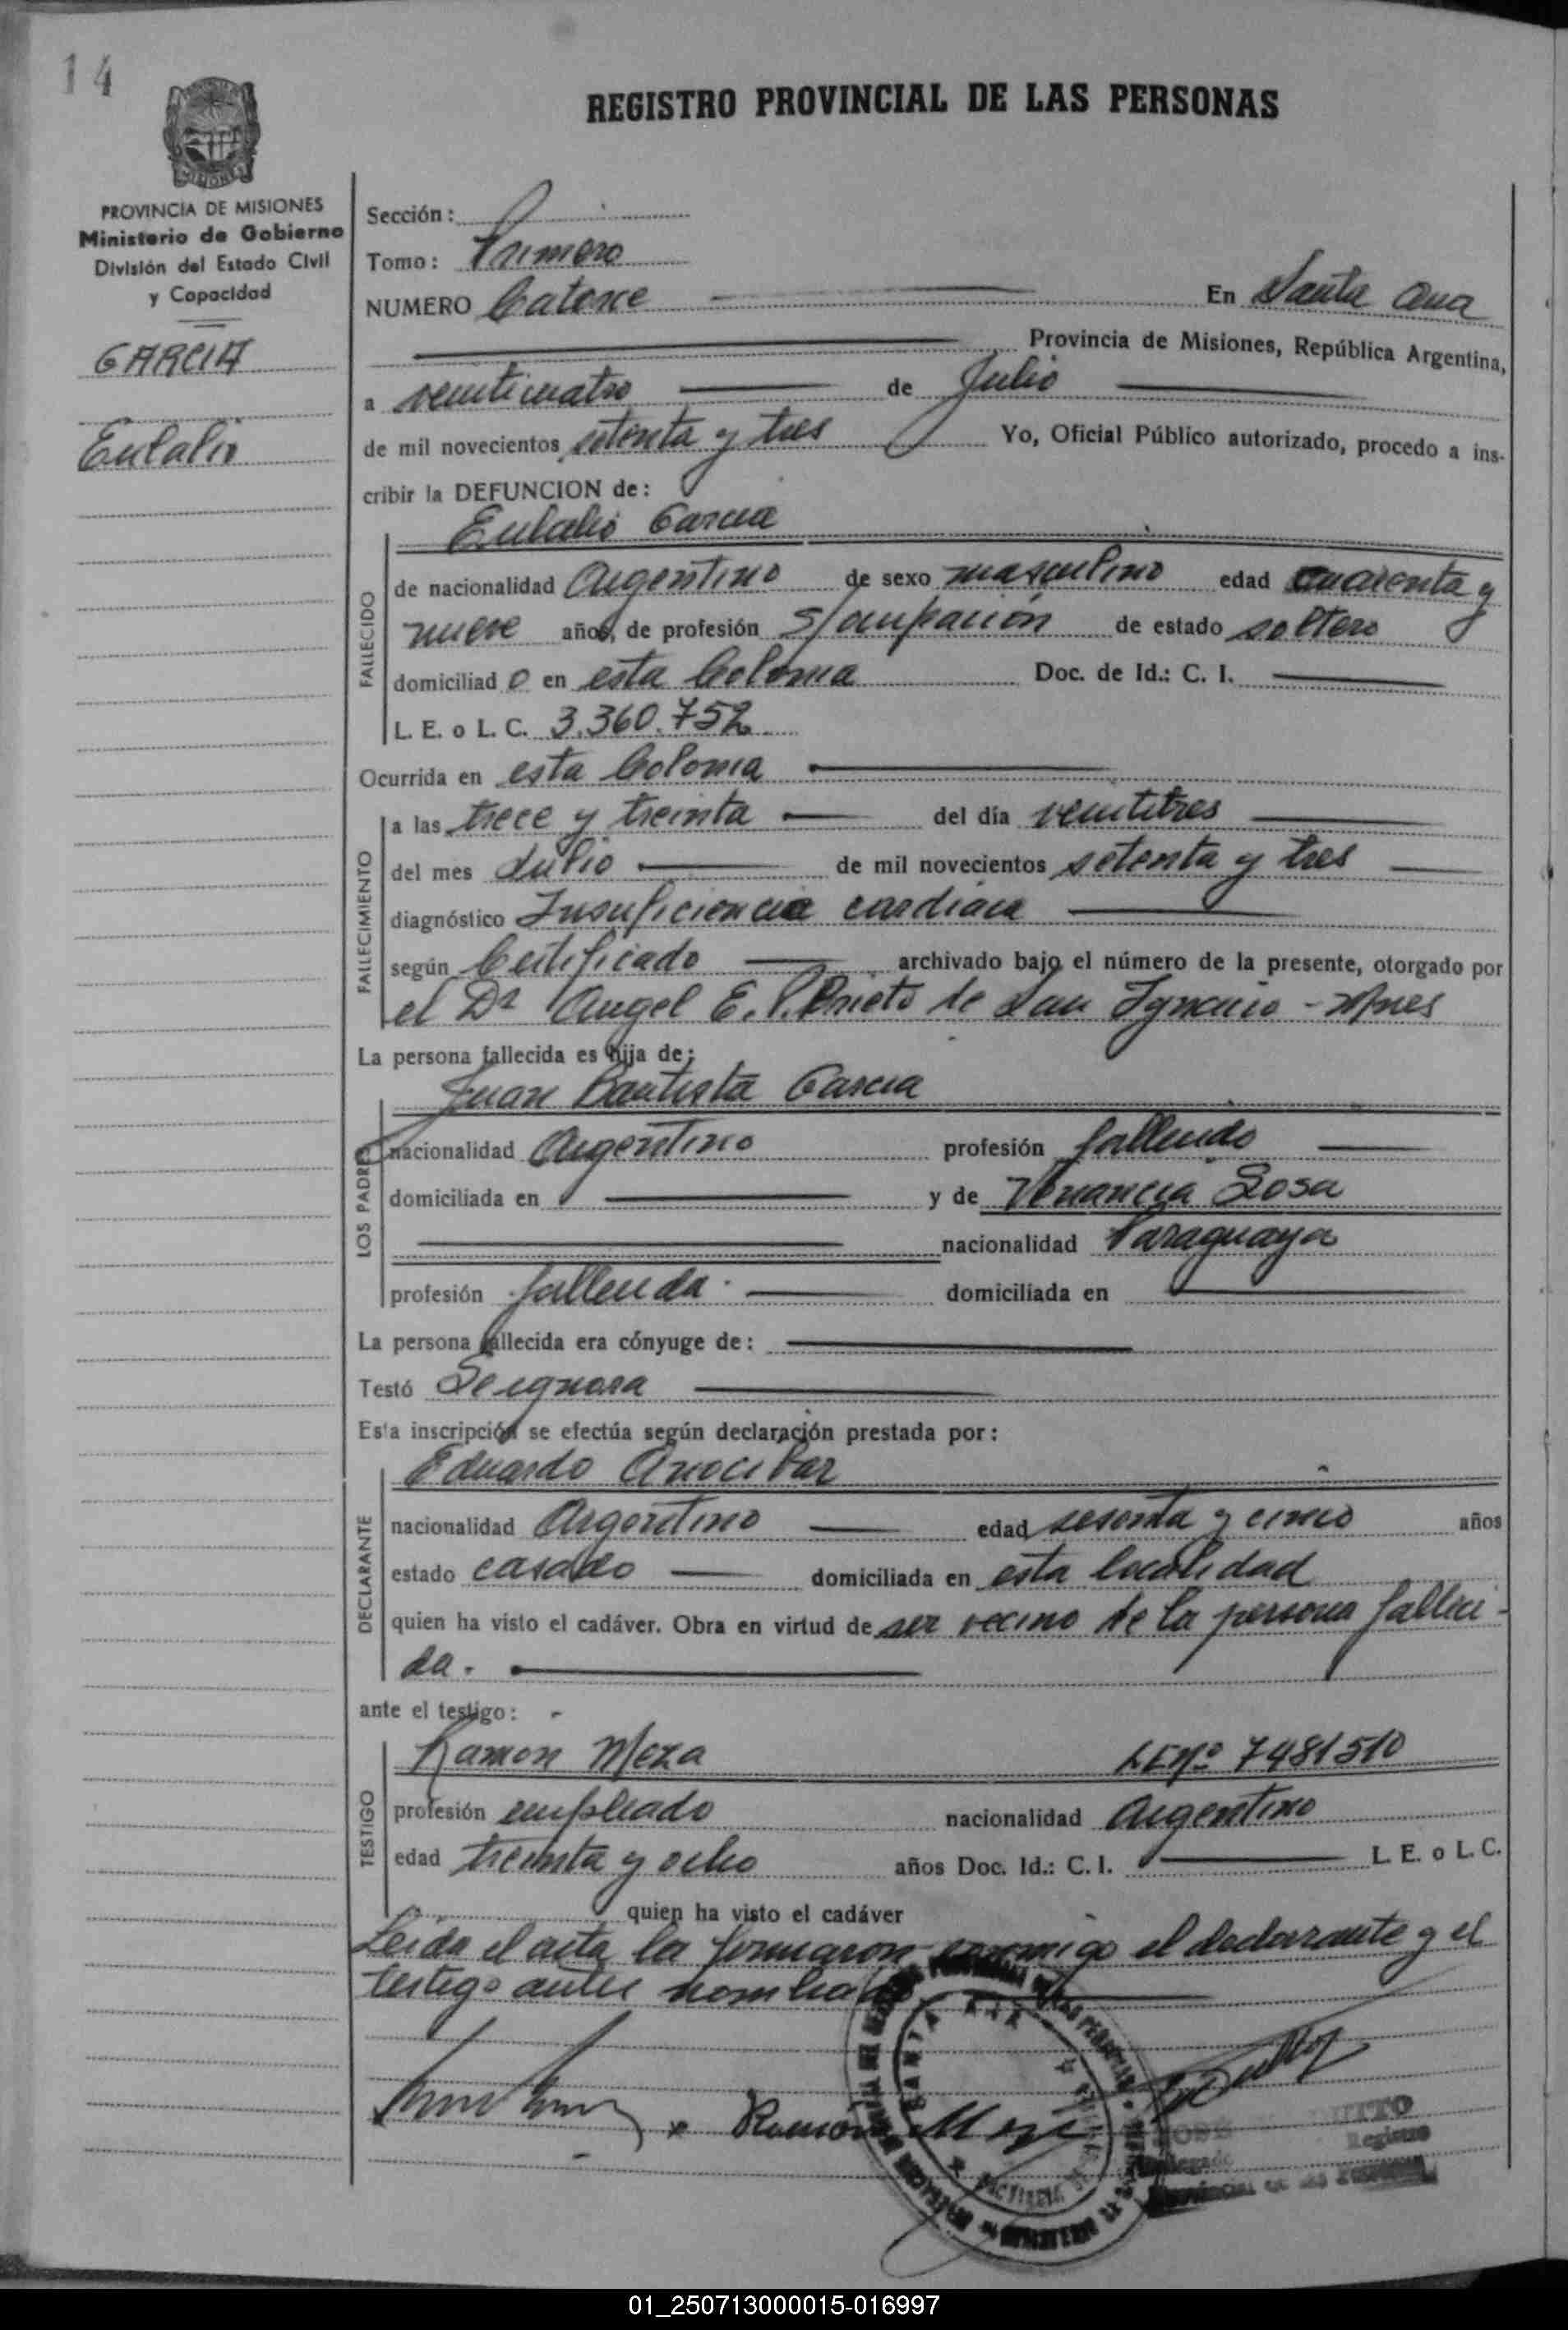 14
REGISTRO PROVINCIAL DE LAS PERSONAS
MISIONES
PROVINCIA DE MISIONES
Ministerio de Gobierno
División del Estado Civil
y Capacidad
GARCIA
Eulalio
Sección:
Tomo: Primero
NUMERO Catorce En Santa Ana
Provincia de Misiones, República Argentina,
a veinticuatro de Julio
de mil novecientos setenta y tres Yo, Oficial Público autorizado, procedo a ins-
cribir la DEFUNCION de:
Eulalio Garcia
FALLECIDO
de nacionalidad Argentino de sexo masculino edad cuarenta y
nueve años, de profesión s/ocupación de estado soltero
domiciliad o en esta Colonia Doc. de Id.: C. I.
L. E. o L. C. 3.360.752
Ocurrida en esta Colonia
FALLECIMIENTO
a las trece y treinta del día veintitres
del mes Julio de mil novecientos setenta y tres
diagnóstico Insuficiencia cardiaca
según Certificado archivado bajo el número de la presente, otorgado por
el Dr Angel E. P. Prieto de San Ignacio - Mnes
La persona fallecida es hija de:
Juan Bautista Garcia
LOS PADRES
nacionalidad Argentino profesión fallecido
domiciliada en y de Venancia Sosa
nacionalidad Paraguaya
profesión fallecida. domiciliada en
La persona fallecida era cónyuge de:
Testó Se ignora
Esta inscripción se efectúa según declaración prestada por:
Eduardo
DECLARANTE
nacionalidad Argentino edad sesenta y cinco años
estado casado domiciliada en esta localidad
quien ha visto el cadáver. Obra en virtud de ser vecino de la persona falleci-
da.
ante el testigo:
Ramon Meza LE Nº 7481510
TESTIGO
profesión empleado nacionalidad Argentino
edad treinta y ocho años Doc. Id.: C. I. L. E. o L. C.
quien ha visto el cadáver
Leida el acta la firmaron conmigo el declarante y el
testigo antes nombrado
Ramon Meza
SANTA ANA
Registro
01_250713000015-016997